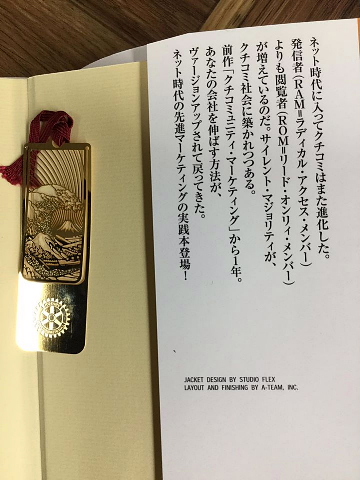 ネット時代に入ってクチコミはまた進化した。
発信者(RAM=ラディカル・アクセス・メンバー)
よりも閲覧者(ROM=リード・オンリィ・メンバー)
が増えているのだ。サイレント・マジョリティが、
クチコミ社会に築かれつつある。
前作「クチコミュニティ・マーケティング」から1年。
あなたの会社を伸ばす方法が、
ヴァージョンアップされて戻ってきた。
ネット時代の先進マーケティングの実践本登場!
JACKET DESIGN BY STUDIO FLEX
LAYOUT AND FINISHING BY A-TEAM, INC.